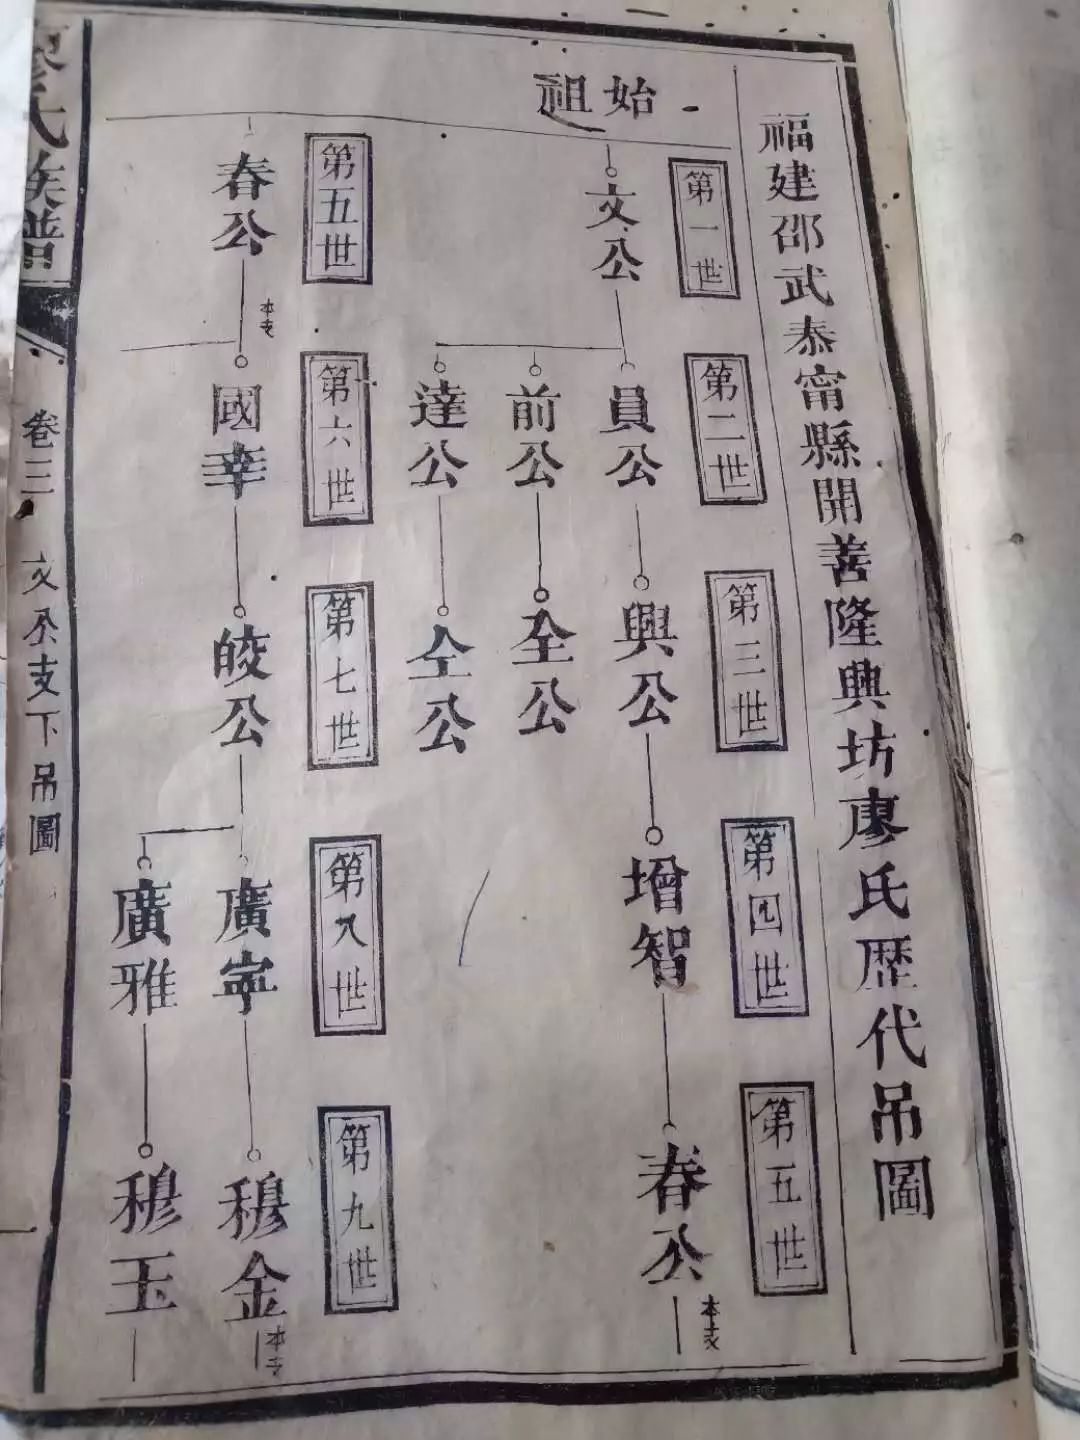 福建邵武泰甯縣開善隆興坊廖氏歴代吊圖
始祖
第一世
文公
第二世
員公
前公
達公
第三世
興公
全公
仝公
第四世
增智
第五世
春公
本支
第五世
春公
本支
第六世
國幸
第七世
皎公
第八世
廣寧
廣雅
第九世
穆金
本子
穆玉
廖氏族譜
卷三
文公支下吊圖